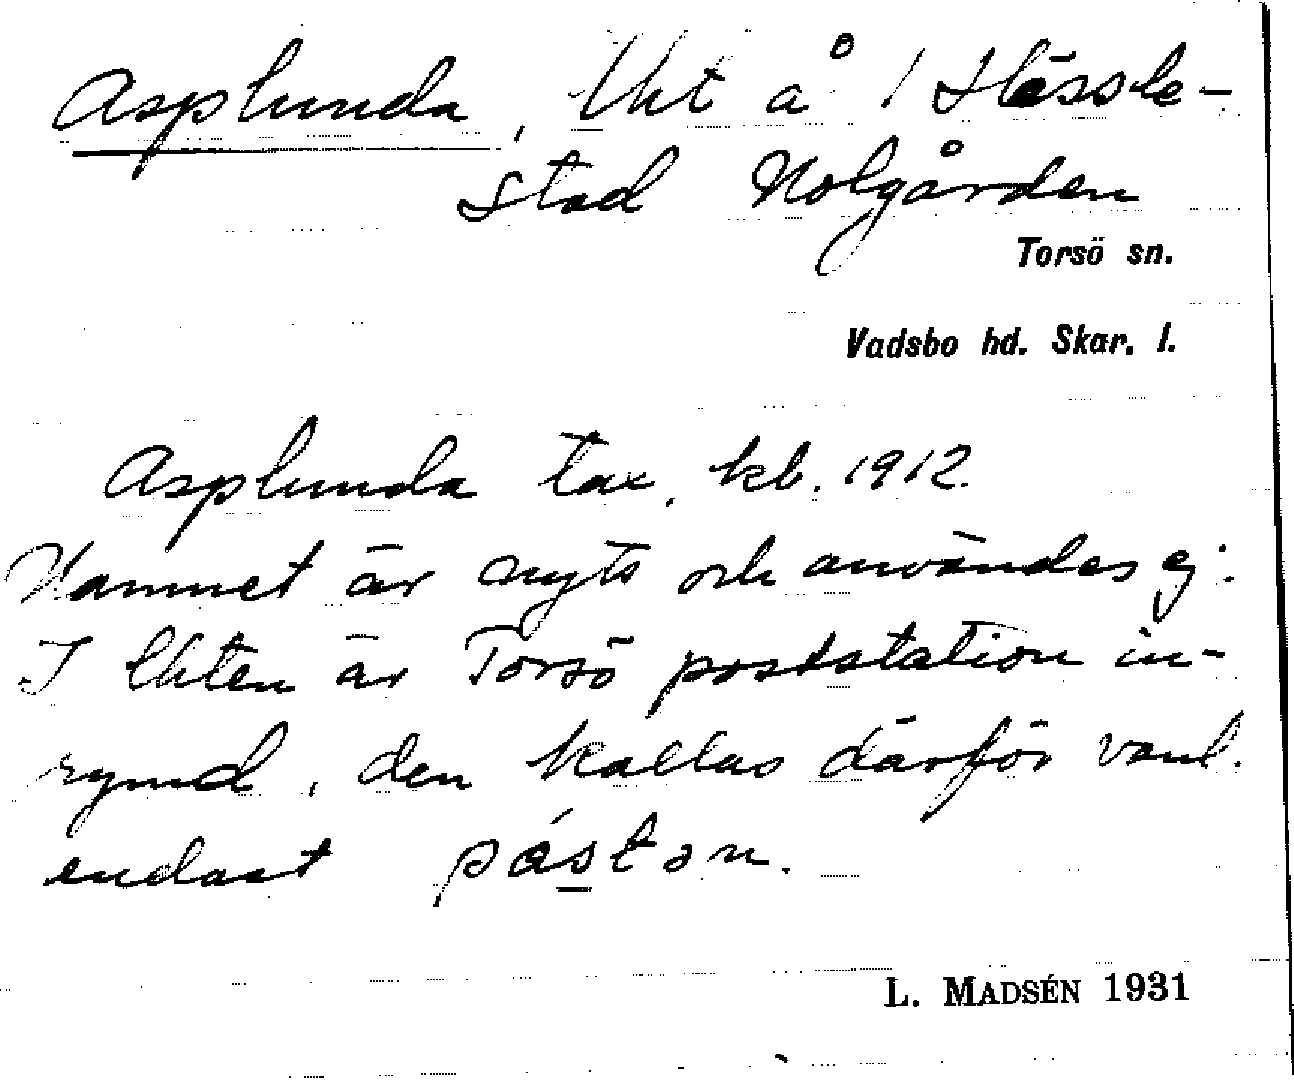 Asplunda, lht å 1 Hässle-
stad Nolgården
Torsö sn.
Vadsbo hd. Skar. l.
Asplunda tax. kb. 1912.
Namnet är nytt och användes ej.
I lhten är Torsö poststation in-
rymd, den kallas därför vanl.
endast pástɔn.
L. MADSÉN 1931